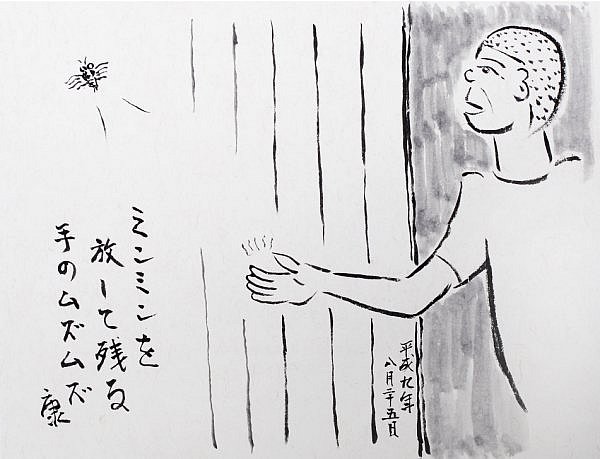 ミンミンを
放して残る
手のムズムズ
康
平成九年
八月二十五日